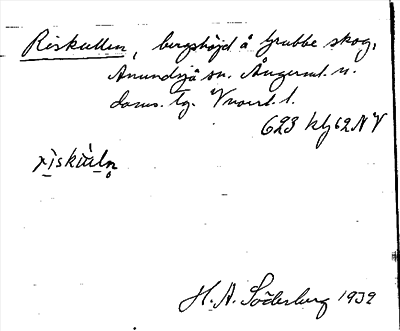 Riskullen, bergshöjd å Grubbe skog,
Anundsjö sn. Ångerml. n.
doms. tg. Vnorrl. l.
623 kbf62NV
rìskùln̥
H. A. Söderberg 1939